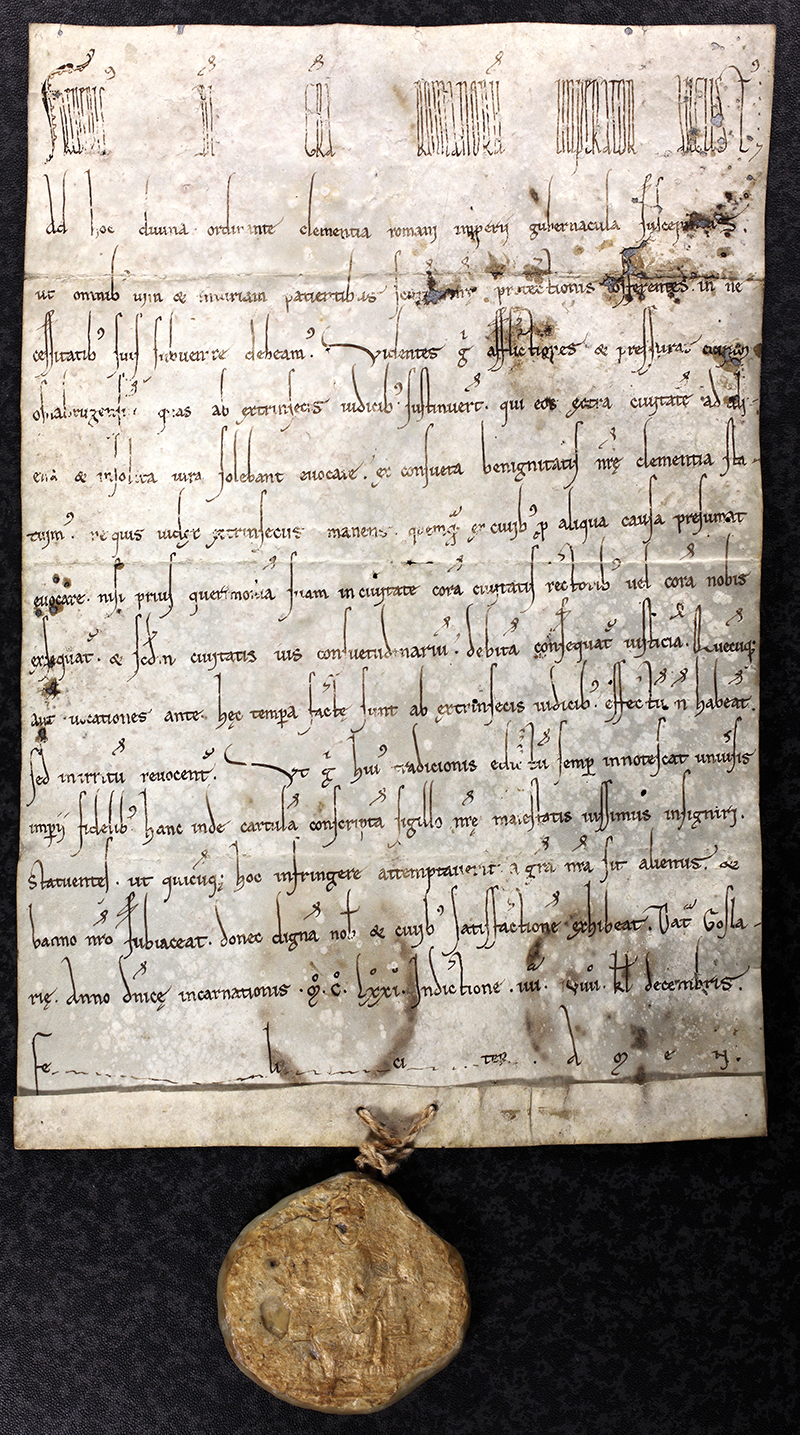 FRIDERICUS DI GRA ROMANORU IMPERATOR AUGUST
Ad hoc divina ordinante clementia romani imperii gubernacula suscepimus.
ut omnib' vim & iniuriam patientibus nrę protectionis offerentes. in ne
cessitatib' suis subvenire debeam'. Videntes g afflictiones & pressuras civium
osnabrugensiu quas ab extrinsecis iudicib' sustinuert. qui eos extra civitatē ad ali
ena & insolita iura solebant evocare. ex consueta benignitatis nrę clementia sta
tuim'. ne quis iudex extrinsecus manens. quemq ex civib' p aliqua causa presumat
evocare. nisi prius querimonia suam in civitate cora civitatis rectorib' vel cora nobis
exsequat. & scdm civitatis ius consuetudinariu. debita consequat iusticia. Quecuq;
aut vocationes ante hęc tempa factę sunt ab extrinsecis iudicib'. effectu n habeat.
sed in irritu revocent. Ut g hui' tradicionis edictu semp innotescat univsis
impii fidelib' hanc inde cartula conscripta sigillo nrę maiestatis iussimus insigniri.
Statuentes. ut quicuq; hoc infringere attemptaverit a gra nra sit alienus. &
banno nro subiaceat. donec digna nob & civib' satisfactione exhibeat. Dat Gosla
rię. Anno dnicę incarnationis .M.C. LXXI. Indictione .IIII. VIIII. kl decembris.
fe li ci ter. A M E N.